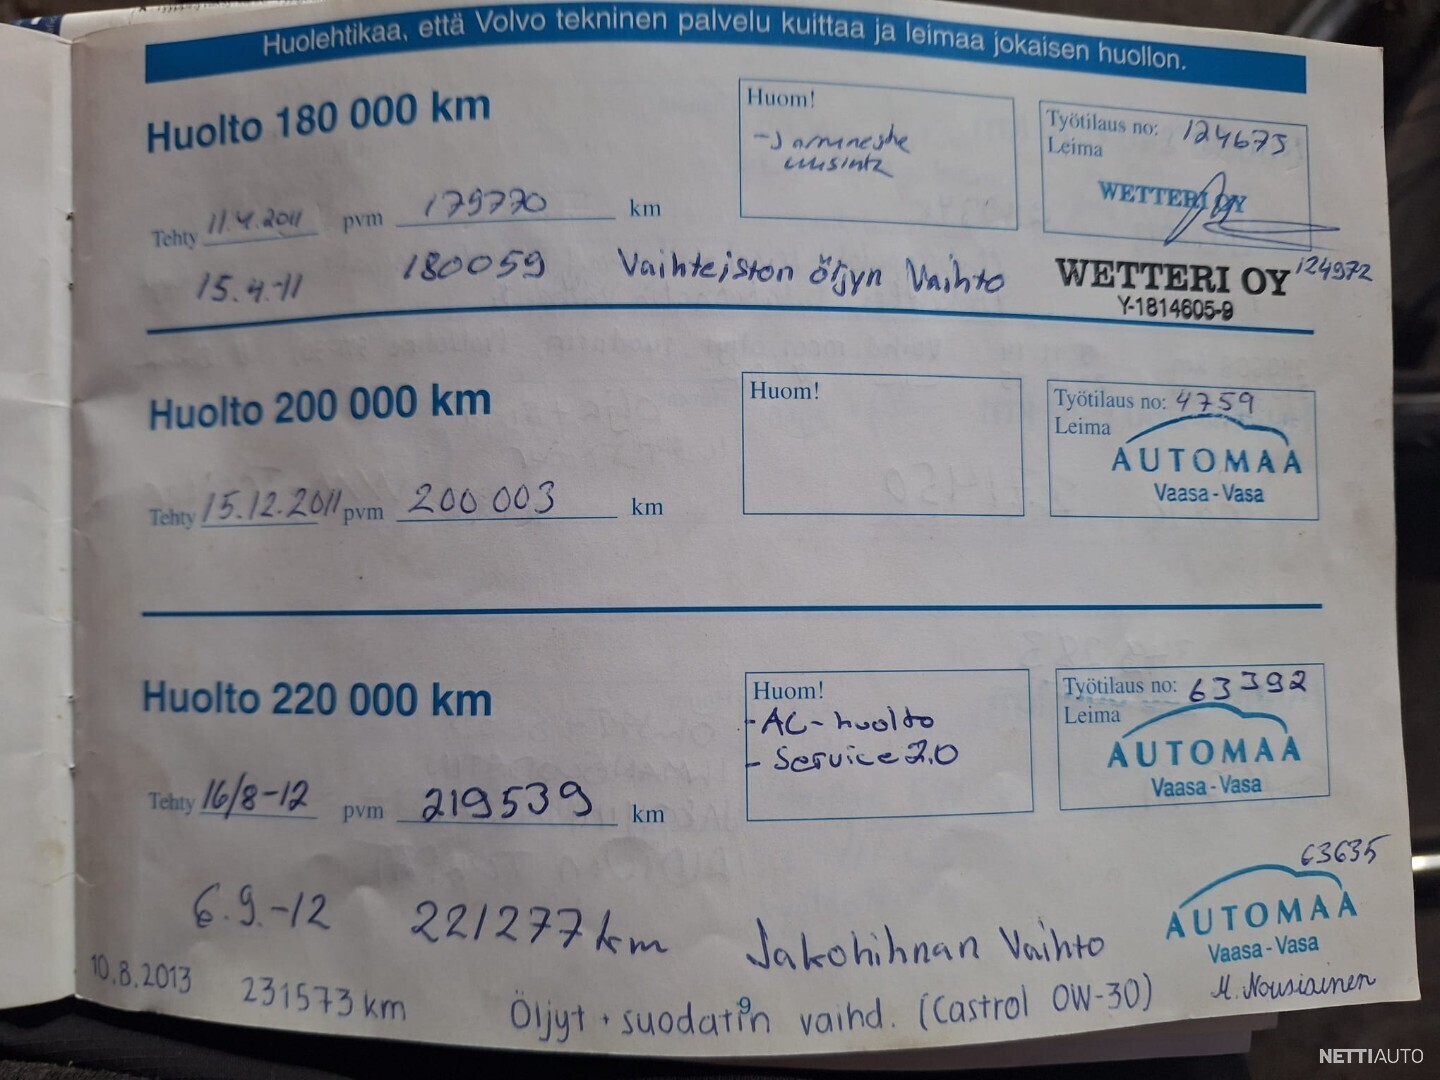 Huolehtikaa, että Volvo tekninen palvelu kuittaa ja leimaa jokaisen huollon.
Huolto 180 000 km
Huom!
-Jarruneste
uusinta
Työtilaus no: 124675
Leima
WETTERI OY
Tehty 11.4.2011 pvm 179770 km
15.4-11 180059 Vaihteiston öljyn Vaihto
WETTERI OY 124972
Y-1814605-9
Huolto 200 000 km
Huom!
Työtilaus no: 4759
Leima
AUTOMAA
Vaasa - Vasa
Tehty 15.12.2011 pvm 200 003 km
Huolto 220 000 km
Huom!
- AC-huolto
- Service 2.0
Työtilaus no: 63392
Leima
AUTOMAA
Vaasa - Vasa
Tehty 16/8-12 pvm 219539 km
63635
6.9.-12 221277 km Jakohihnan Vaihto
AUTOMAA
Vaasa - Vasa
10.8.2013 231573 km Öljyt + suodatin vaihd. (Castrol 0W-30) M. Nousiainen
9
NETTIAUTO